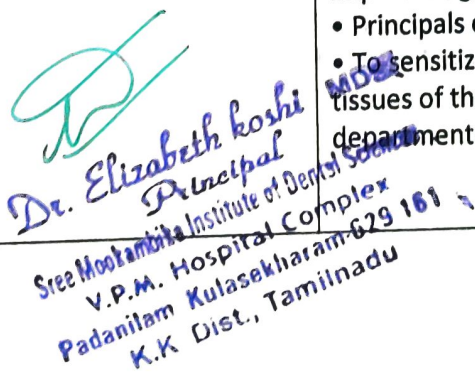 • Principals
• To sensitiz
tissues of th
department
Dr. Elizabeth Koshi MDS
Principal
Sree Mookambika Institute of Dental Sciences
V.P.M. Hospital Complex
Padanilam Kulasekharam-629 161
K.K Dist., Tamilnadu